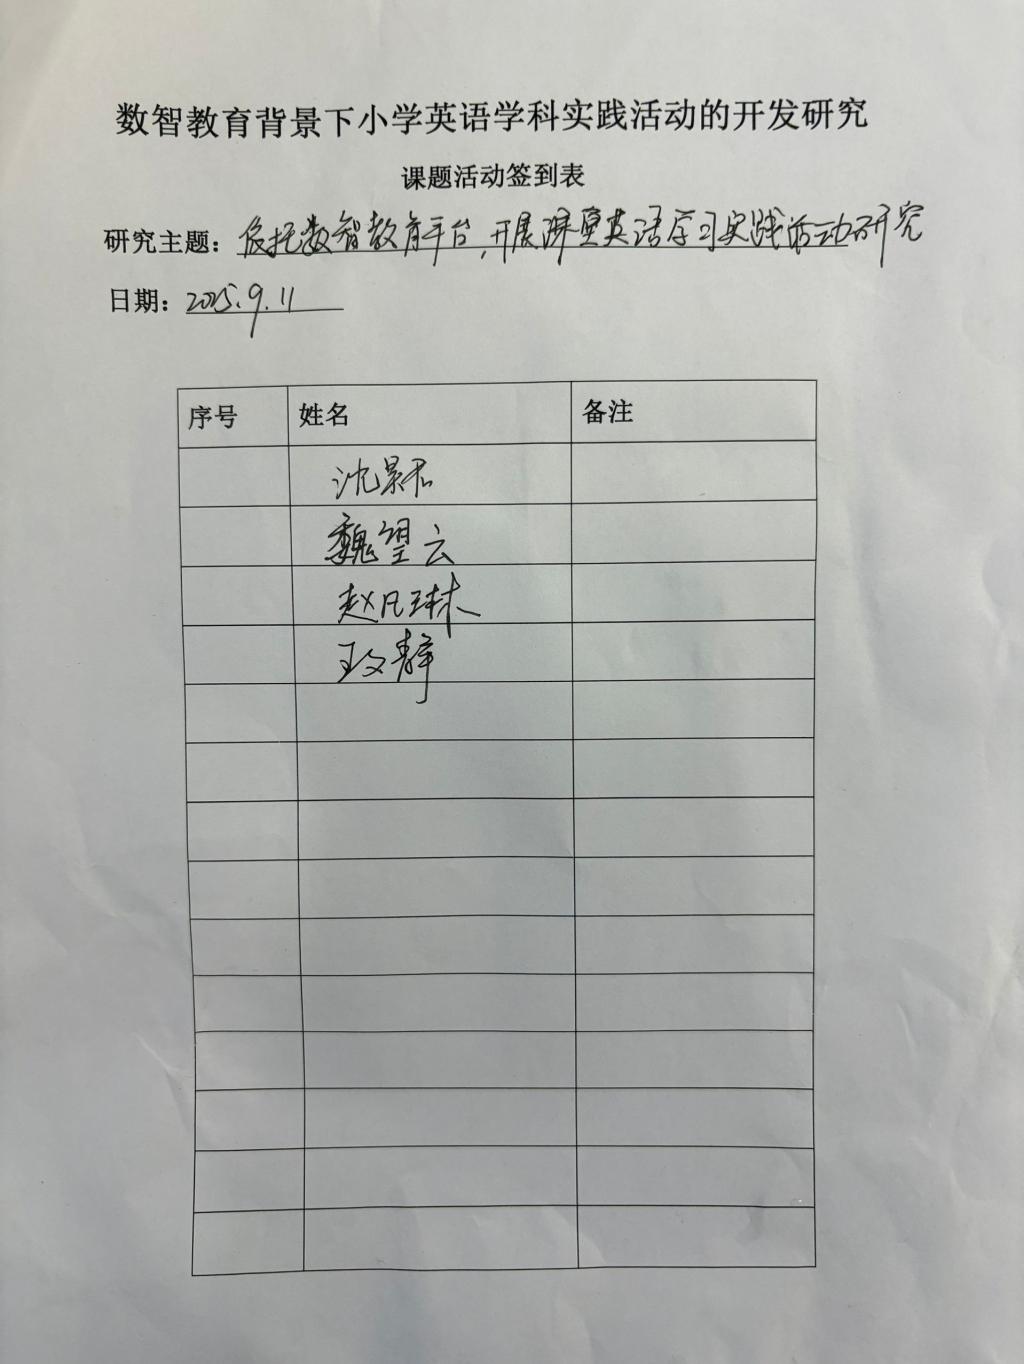 数智教育背景下小学英语学科实践活动的开发研究
课题活动签到表
研究主题：依托数智教育平台，开展课堂英语学习实践活动研究
日期：2025.9.11
序号 姓名 备注
沈景君
魏望云
赵凡琳
王文静